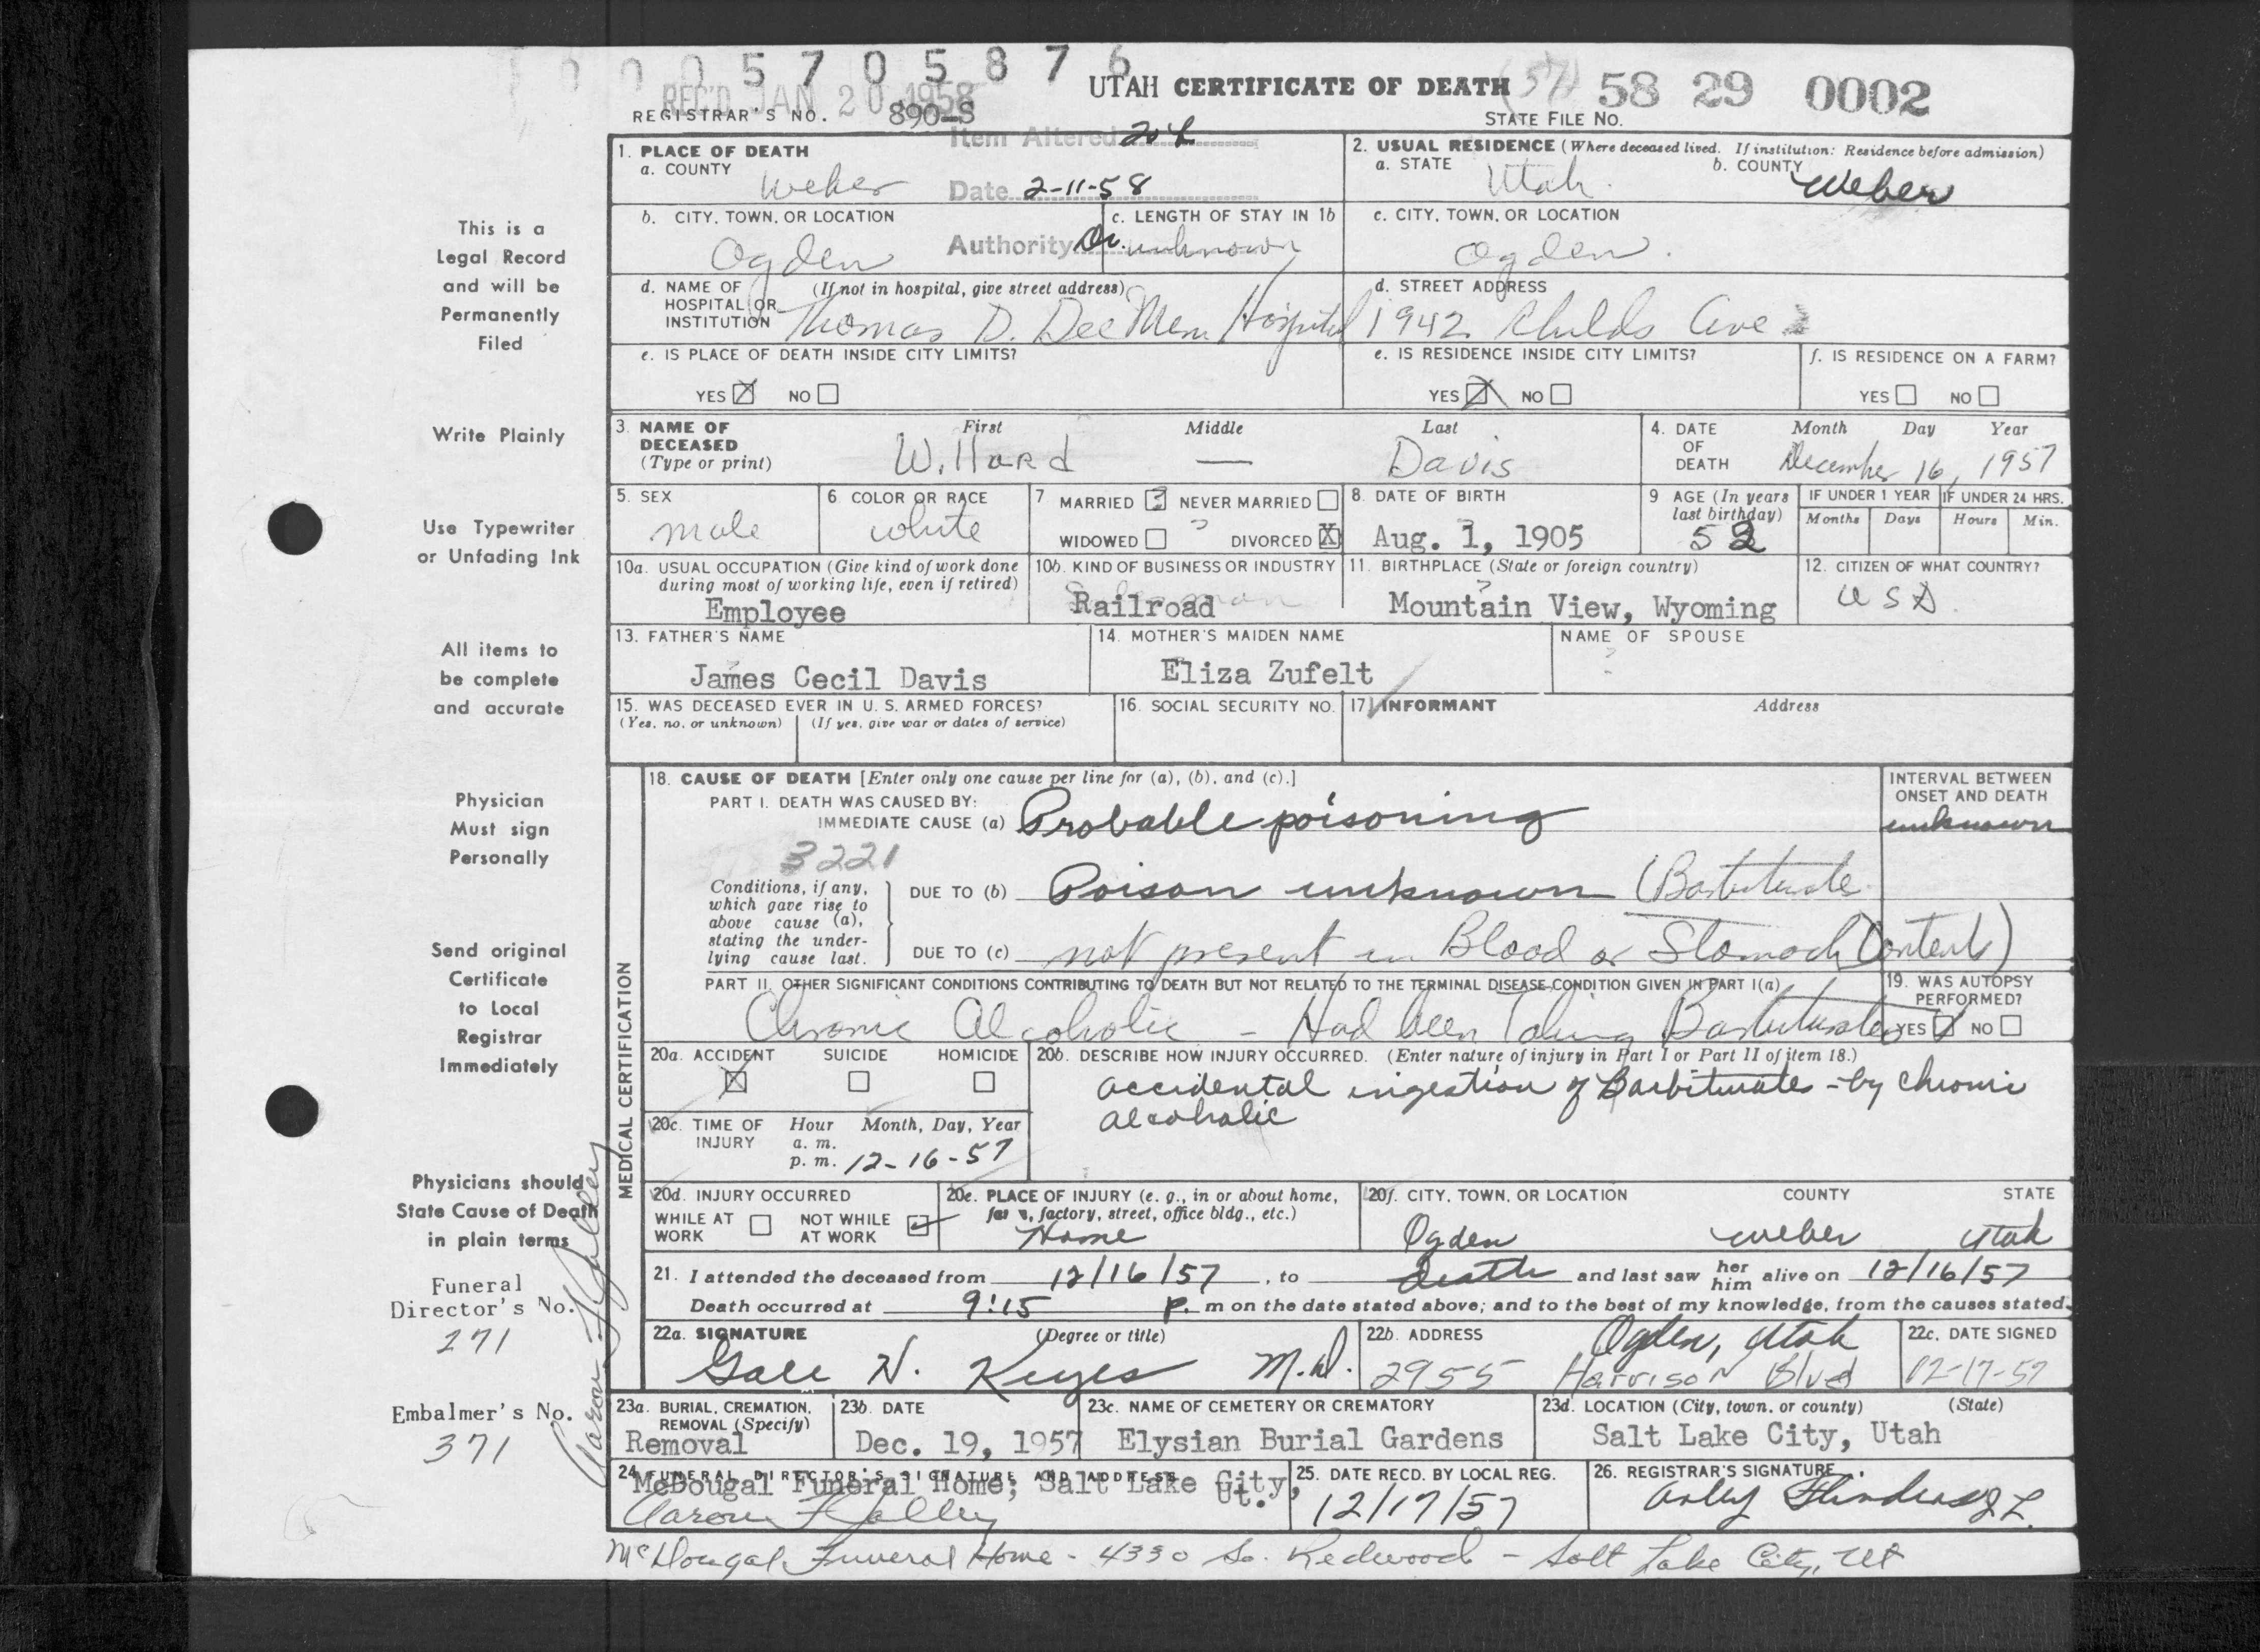 0 0 0 5 7 0 5 8 7 6
REC'D JAN 20 1958
UTAH CERTIFICATE OF DEATH (57) 58 29 0002
REGISTRAR'S NO. 890-S
STATE FILE NO.
Item Altered
Date 2-11-58
Authority Dr.
1. PLACE OF DEATH
a. COUNTY
Weber
2. USUAL RESIDENCE (Where deceased lived. If institution: Residence before admission)
a. STATE
Utah
b. COUNTY
Weber
b. CITY, TOWN, OR LOCATION
Ogden
c. LENGTH OF STAY IN 1b
unknown
c. CITY, TOWN, OR LOCATION
Ogden
d. NAME OF HOSPITAL OR INSTITUTION
(If not in hospital, give street address)
Thomas D. Dee Mem Hospital
d. STREET ADDRESS
1942 Childs Ave
e. IS PLACE OF DEATH INSIDE CITY LIMITS?
YES X NO
e. IS RESIDENCE INSIDE CITY LIMITS?
YES X NO
f. IS RESIDENCE ON A FARM?
YES NO
3. NAME OF DECEASED
(Type or print)
First Middle Last
Willard — Davis
4. DATE OF DEATH
Month Day Year
December 16, 1957
5. SEX
male
6 COLOR OR RACE
white
7 MARRIED ? NEVER MARRIED
WIDOWED DIVORCED X
8. DATE OF BIRTH
Aug. 1, 1905
9 AGE (In years last birthday)
52
IF UNDER 1 YEAR
Months Days
IF UNDER 24 HRS.
Hours Min.
10a. USUAL OCCUPATION (Give kind of work done during most of working life, even if retired)
Employee
10b. KIND OF BUSINESS OR INDUSTRY
Railroad
11. BIRTHPLACE (State or foreign country)
Mountain View, Wyoming
12. CITIZEN OF WHAT COUNTRY?
USA
13. FATHER'S NAME
James Cecil Davis
14. MOTHER'S MAIDEN NAME
Eliza Zufelt
NAME OF SPOUSE
?
15. WAS DECEASED EVER IN U. S. ARMED FORCES?
(Yes, no, or unknown) (If yes, give war or dates of service)
16. SOCIAL SECURITY NO.
17. INFORMANT Address
MEDICAL CERTIFICATION
18. CAUSE OF DEATH [Enter only one cause per line for (a), (b), and (c).]
INTERVAL BETWEEN ONSET AND DEATH
PART I. DEATH WAS CAUSED BY:
IMMEDIATE CAUSE (a) Probable poisoning unknown
3221
Conditions, if any, which gave rise to above cause (a), stating the underlying cause last.
DUE TO (b) Poison unknown (Barbiturate
DUE TO (c) not present in Blood or Stomach Contents)
PART II. OTHER SIGNIFICANT CONDITIONS CONTRIBUTING TO DEATH BUT NOT RELATED TO THE TERMINAL DISEASE CONDITION GIVEN IN PART I(a)
Chronic Alcoholic - Had been Taking Barbiturates
19. WAS AUTOPSY PERFORMED?
YES X NO
20a. ACCIDENT SUICIDE HOMICIDE
X
20b. DESCRIBE HOW INJURY OCCURRED. (Enter nature of injury in Part I or Part II of item 18.)
accidental ingestion of Barbiturates - by chronic
alcoholic
20c. TIME OF INJURY
Hour Month, Day, Year
a. m.
p. m. 12-16-57
20d. INJURY OCCURRED
WHILE AT WORK NOT WHILE AT WORK
20e. PLACE OF INJURY (e. g., in or about home, farm, factory, street, office bldg., etc.)
Home
20f. CITY, TOWN, OR LOCATION COUNTY STATE
Ogden Weber Utah
21. I attended the deceased from 12/16/57, to Death and last saw her him alive on 12/16/57
Death occurred at 9:15 P. m on the date stated above; and to the best of my knowledge, from the causes stated.
22a. SIGNATURE (Degree or title)
Gale N. Keyes M.D.
22b. ADDRESS
Ogden, Utah
2955 Harrison Blvd
22c. DATE SIGNED
12-17-57
23a. BURIAL, CREMATION, REMOVAL (Specify)
Removal
23b. DATE
Dec. 19, 1957
23c. NAME OF CEMETERY OR CREMATORY
Elysian Burial Gardens
23d. LOCATION (City, town, or county) (State)
Salt Lake City, Utah
24 FUNERAL DIRECTOR'S SIGNATURE AND ADDRESS
McDougal Funeral Home; Salt Lake City, Ut.
25. DATE RECD. BY LOCAL REG.
12/17/57
26. REGISTRAR'S SIGNATURE
McDougal Funeral Home - 4330 So. Redwood - Salt Lake City, Ut
This is a
Legal Record
and will be
Permanently
Filed
Write Plainly
Use Typewriter
or Unfading Ink
All items to
be complete
and accurate
Physician
Must sign
Personally
Send original
Certificate
to Local
Registrar
Immediately
Physicians should
State Cause of Death
in plain terms
Funeral
Director's No.
271
Embalmer's No.
371